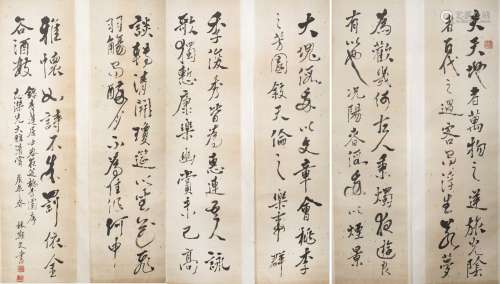 夫天地者萬物之逆旅光陰
者百代之過客而浮生若夢
為歡幾何古人秉燭夜遊良
有以也況陽春召我以煙景
大塊假我以文章會桃李
之芳園敘天倫之樂事群
季俊秀皆為惠連吾人詠
歌獨慙康樂幽賞未已高
談轉清開瓊筵以坐花飛
羽觴而醉月不有佳作何申
雅懷如詩不成罰依金
谷酒數
春夜宴桃李園序
大雅清賞 春 林 書